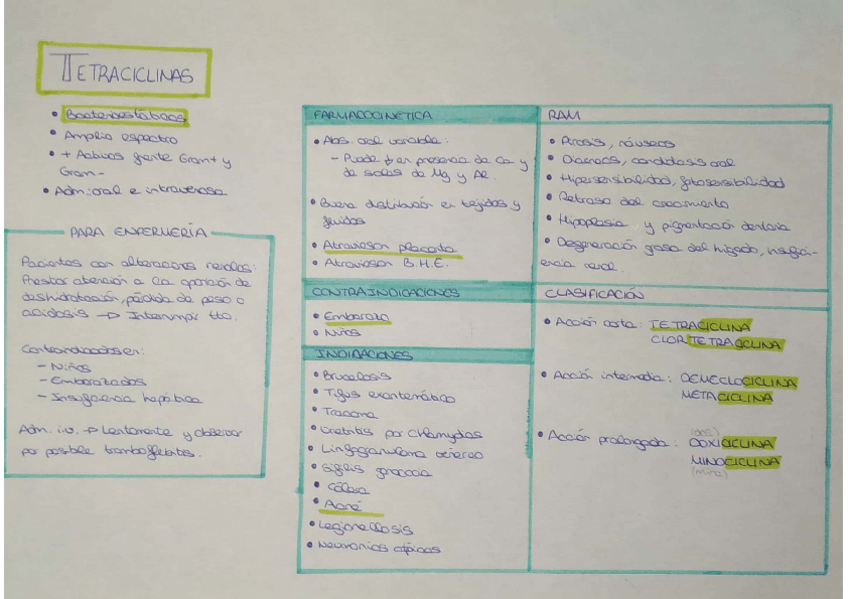 TETRACICLINAS
• Bacteriostáticos
• Amplio espectro
• + Activos frente Gram+ y
Gram-
• Adm: oral e intravenosa
PARA ENFERMERÍA
Pacientes con alteraciones renales:
Prestar atención a la aparición de
deshidratación, pérdida de peso o
acidosis → Interrumpir tto.
Contraindicados en:
- Niños
- Embarazadas
- Insuficiencia hepática
Adm. i.v. → Lentamente y observar
por posible tromboflebitis.
FARMACOCINÉTICA
• Abs. oral variable:
- Puede ↓ en presencia de Ca y
de sales de Mg y Al.
• Buena distribución en tejidos y
fluidos
• Atraviesan placenta
• Atraviesan B.H.E.
CONTRAINDICACIONES
• Embarazo
• Niños
INDICACIONES
• Brucelosis
• Tifus exantemático
• Tracoma
• Uretritis por Chlamydas
• Linfogranuloma venéreo
• Sífilis gonococia
• Cólera
• Acné
• Legionellosis
• Neumonías atípicas
RAM
• Pirosis, náuseas
• Diarreas, candidiasis oral
• Hipersensibilidad, fotosensibilidad
• Retraso del crecimiento
• Hipoplasia y pigmentación dentaria
• Degeneración grasa del hígado, insufici-
encia renal.
CLASIFICACIÓN
• Acción corta: TETRACICLINA
CLORTETRACICLINA
• Acción intermedia: DEMECLOCICLINA
METACICLINA
(dos)
• Acción prolongada: DOXICICLINA
MINOCICLINA
(mino)